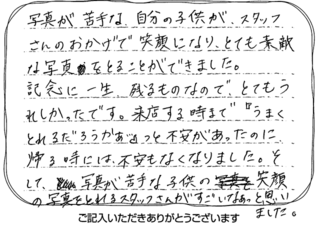 写真が苦手な、自分の子供が、スタッフ
さんのおかげで笑顔になり、とても素敵
な写真をとることができました。
記念に一生、残るものなので、とてもう
れしかったです。来店する時まで『うまく
とれるだろうかぁ』っと不安があったのに
帰る時には、不安もなくなりました。そ
して、写真が苦手な子供の笑顔
の写真をとれるスタッフさんがすごいなぁっと思い
ました。
ご記入いただきありがとうございます